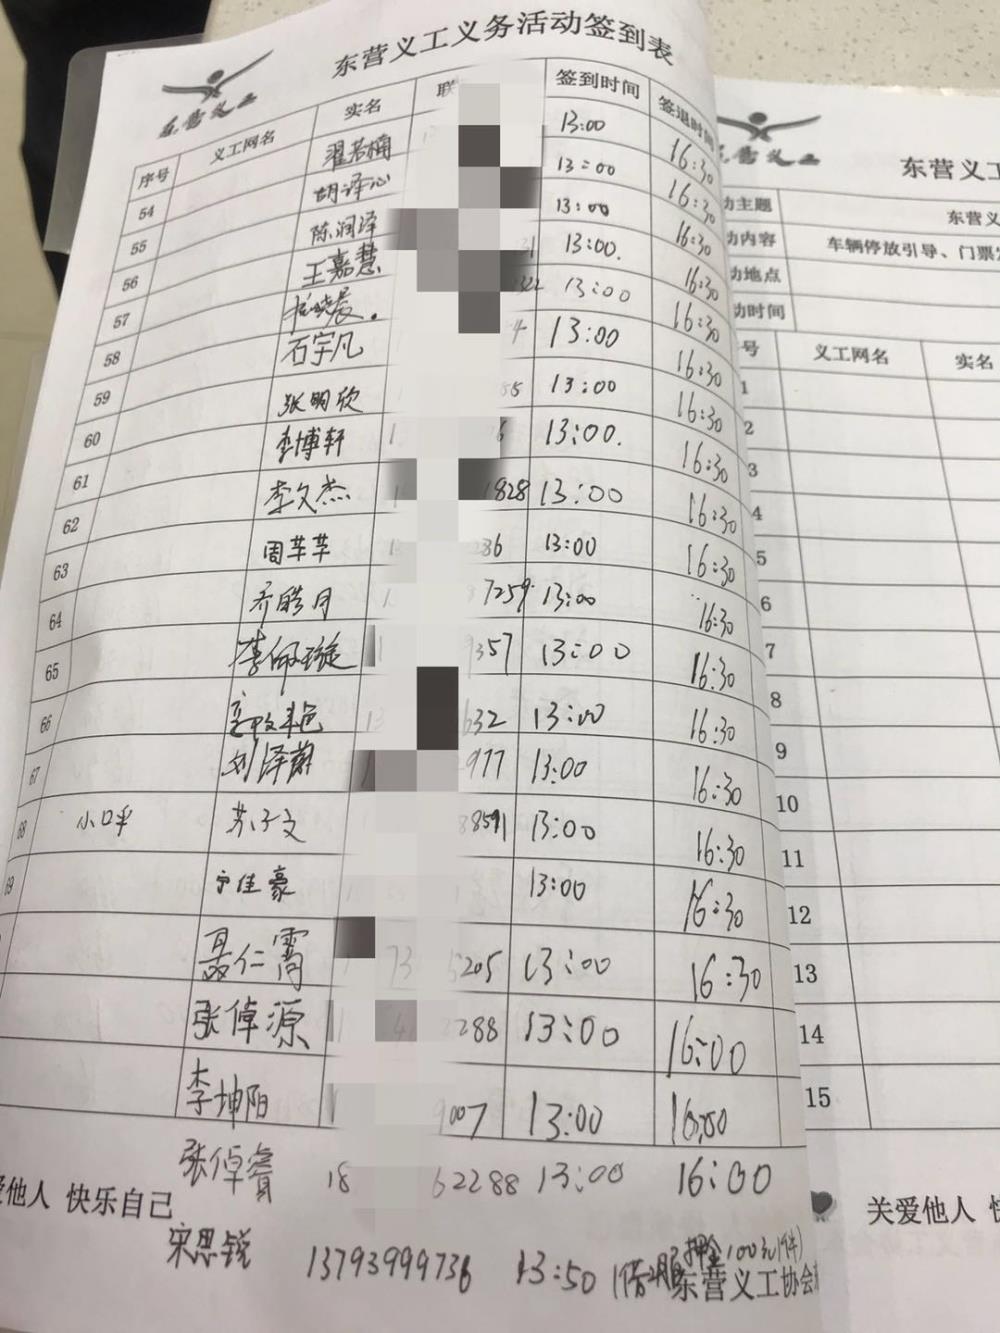 东营义工义务活动签到表
东营义工
序号 义工网名 实名 联 签到时间 签退时间
54 翟若楠 13:00 16:30
55 胡译心 13:00 16:30
56 陈润泽 13:00 16:30
57 王嘉慧 31 13:00. 16:30
58 晨. 322 13:00 16:30
59 石宇凡 4 13:00 16:30
60 张明欣 55 13:00 16:30
61 李博轩 1 6 13:00. 16:30
62 李文杰 1 1828 13:00 16:30
63 周芊芊 286 13:00 16:30
64 乔皓月 13 7259 13:00 16:30
65 李佩璇 1 9357 13:00 16:30
66 13 632 13:00 16:30
67 刘泽蔚 2977 13:00 16:30
68 小口乎 苏子文 8591 13:00 16:30
69 宁佳豪 13:00 16:30
聂仁霄 73 5205 13:00 16:30
张倬源 1 4 2288 13:00 16:00
李坤阳 1 9007 13:00
张倬睿 18 62288 13:00 16:00
爱他人 快乐自己
宋思锐 13793999736 13:50 押金100元(1件)
东营义工协会
东营义工
东营义工
动主题 东营义
动内容 车辆停放引导、门票
动地点
动时间
号 义工网名 实名
1
2
3
4
5
6
7
8
9
10
11
12
13
14
15
关爱他人 快